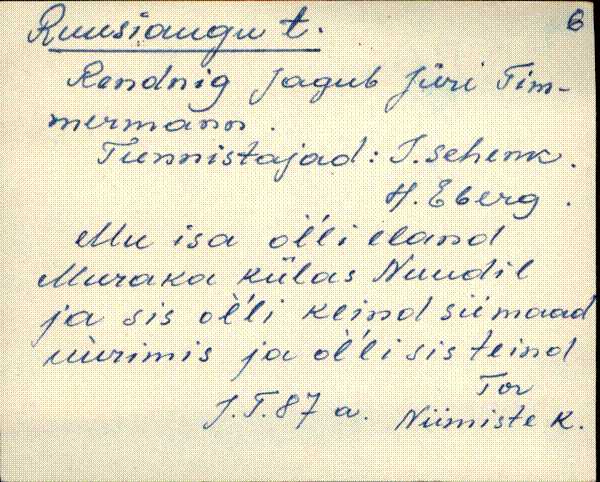 Ruusiaugu t. 6
Rendnig Jagub Jüri Tim-
mermann.
Tunnistajad: J. Schenk.
H. Eberg.
Mu isa ol'li eland
Muraka külas Nuudil
ja sis ol'li keind siimaad
üürimis ja ol'li sis teind
Tor
J.T. 87 a. Niimiste k.